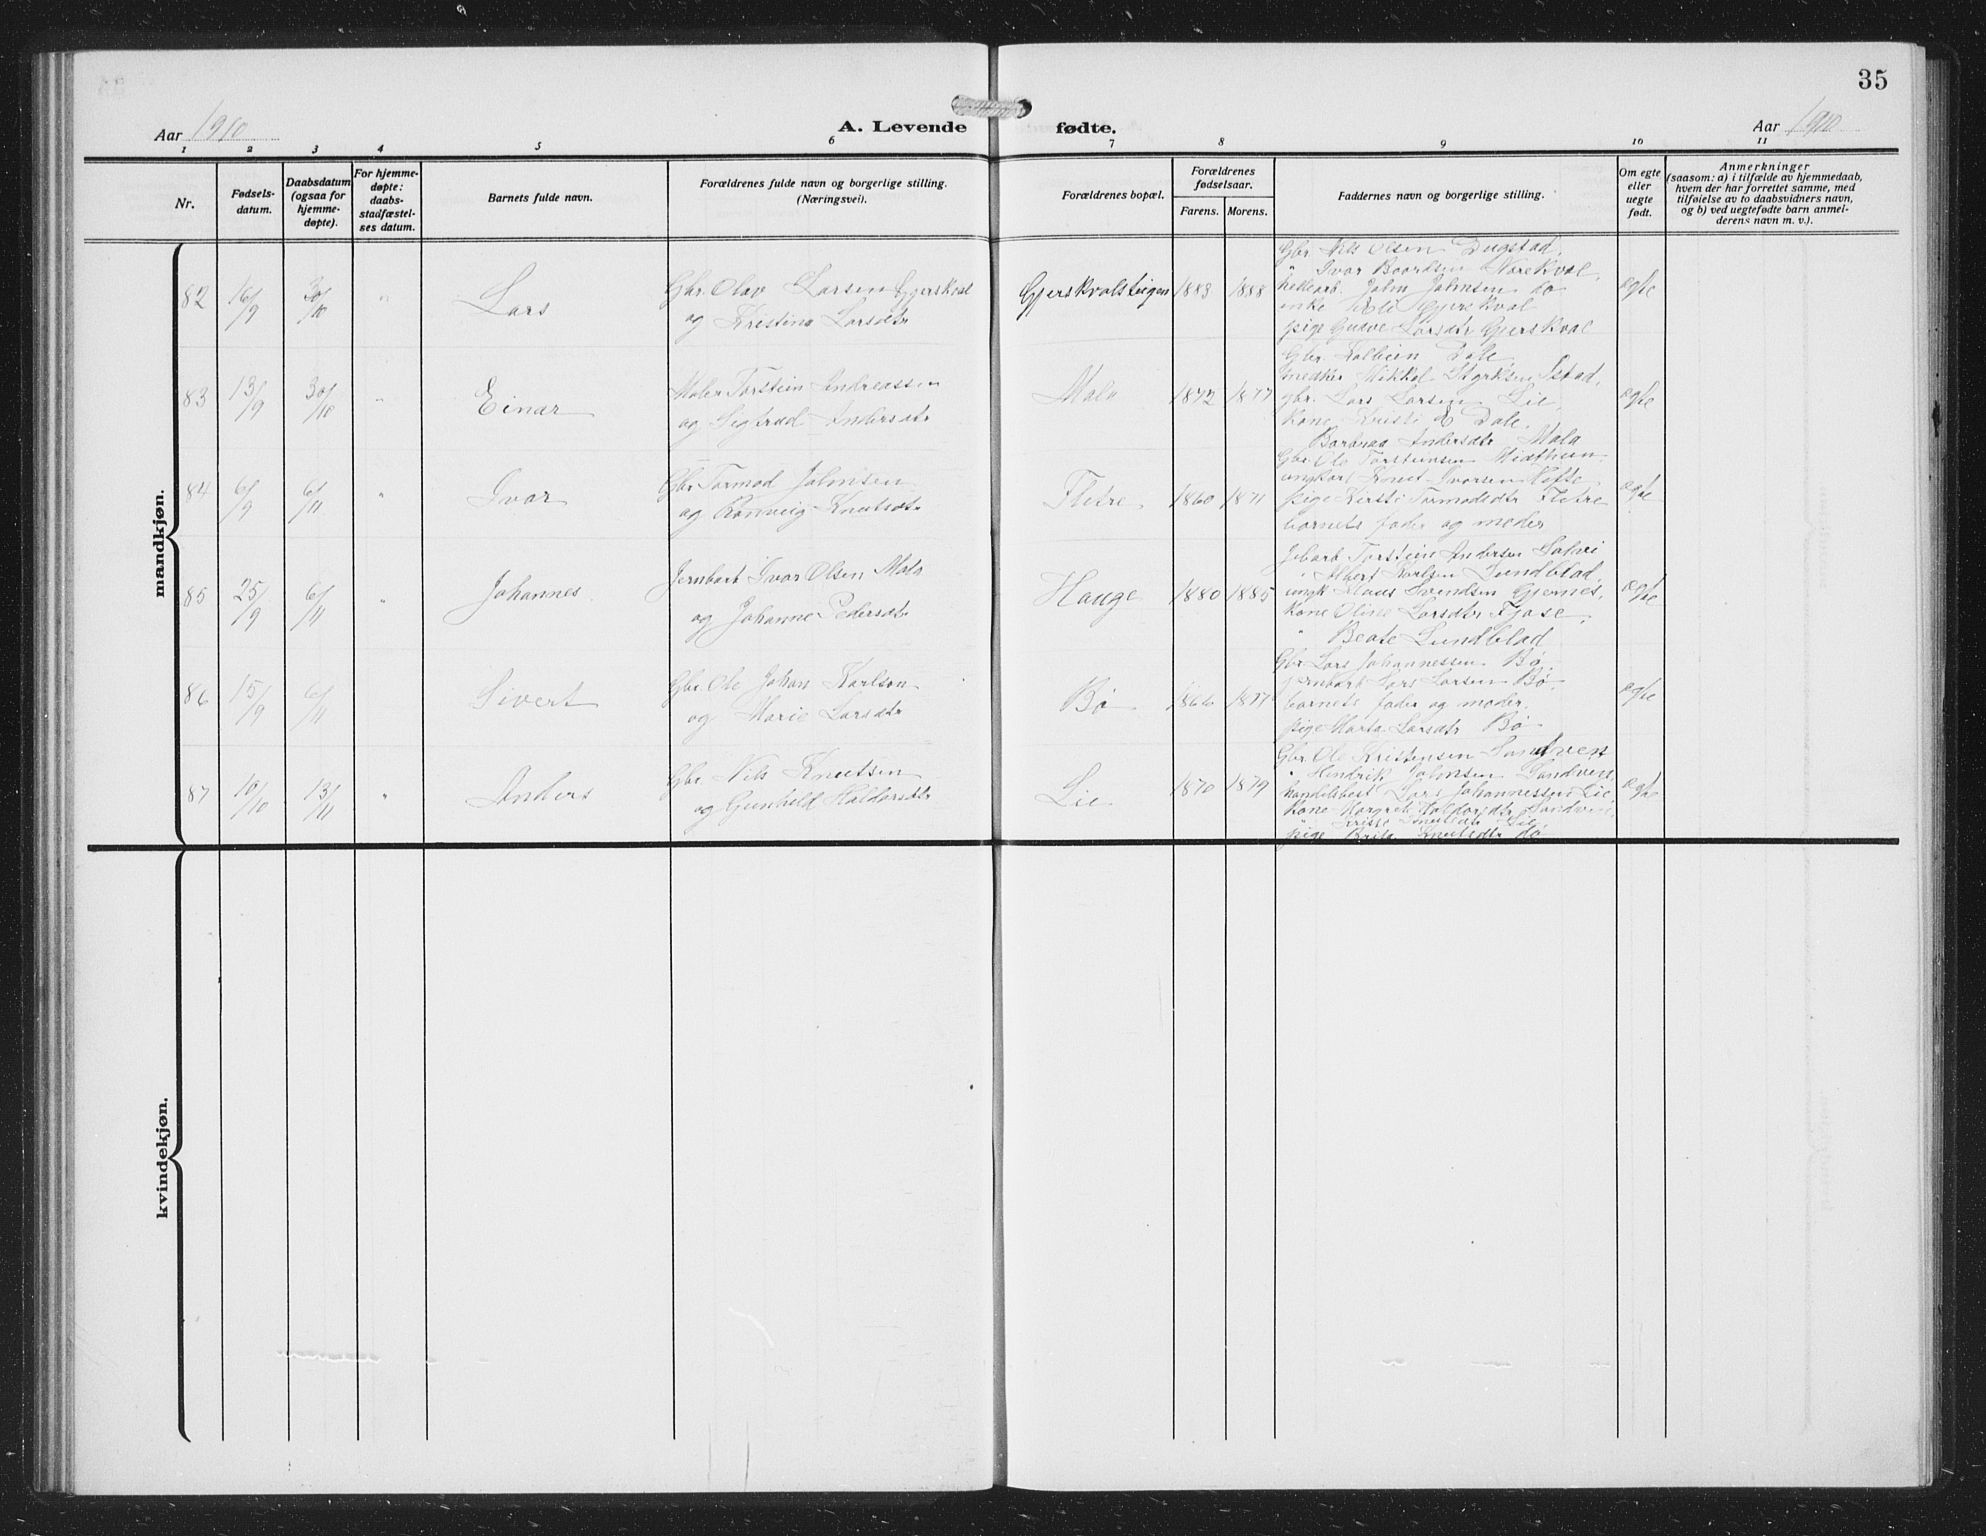 35
Aar 1910
A. Levende fødte.
Aar 1910
1 2 3 4 5 6 7 8 9 10 11
Nr.
Fødsels-
datum.
Daabsdatum
(ogsaa for
hjemme-
døpte).
For hjemme-
døpte:
daabs-
stadfæstel-
ses datum.
Barnets fulde navn.
Forældrenes fulde navn og borgerlige stilling.
(Næringsvei).
Forældrenes bopæl.
Forældrenes
fødselsaar.
Farens. Morens.
Faddernes navn og borgerlige stilling.
Om egte
eller
uegte
født.
Anmerkninger
(saasom: a) i tilfælde av hjemmedaab,
hvem der har forrettet samme, med
tilføielse av to daabsvidners navn,
og b) ved uegtefødte barn anmel-
derens navn m. v.).
mandkjøn.
82 16/9 30/10 " Lars
Gbr. Olav Larsen Gjerskval
og Kristina Larsdtr
Gjerskvalsteigen 1883 1888
Gbr Nils Olsen Dugstad,
" Ivar Baardsen Nærekval,
John Johnsen do
enke Gjerskval
pige Larsdtr Gjerskval
egte
83 13/9 30/10 " Einar
Maler Torstein Andreassen
og Sigtrud Andersdtr
Mala 1872 1877
Gbr. Kolbein Dale,
Mikkel Styrksen Istad,
Gbr. Lars Larsen Lie,
Kone Kristi E Dale,
Andersdtr Mala
egte
84 6/9 6/11 " Ivar
Gbr Tormod Johnsen
og Ranveig Knutsdtr
Fletre 1860 1871
Gbr. Ole Torsteinsen Midthun,
ungkar Knut Ivarsen Hefte
pige Kirsti Tormodsdtr Fletre
barnets fader og moder
egte
85 25/9 6/11 " Johannes
Jernbarb Ivar Olsen Mala
og Johanne Pedersdtr
Hauge 1880 1885
Jrbarb Torstein Andersen
" Albert Karlsen Lundblad,
ungk Klaus Svendsen Gjernes,
Kone Oline Larsdtr Fjose,
" Beate Lundblad
egte
86 15/9 6/11 Sivert
Gbr. Ole Johan Karlsen
og Marie Larsdtr
Bø 1866 1877
Gbr Lars Johannessen Bø,
jernbarb Lars Larsen Bø,
barnets fader og moder,
pige Marta Larsdtr Bø
egte
87 10/10 13/11 " Anders
Gbr. Nils Knutsen
og Gunhild Haldorsdtr
Lie 1870 1879
Gbr Ole Kristensen Sandven
" Hendrik Johnsen Sandven,
handelsbest Lars Johannessen Lie,
Kone Margreti Haldorsdtr Sandven,
" Kristi Knutsdtr Lie,
pige Brita Knutsdtr do
egte
kvindekjøn.